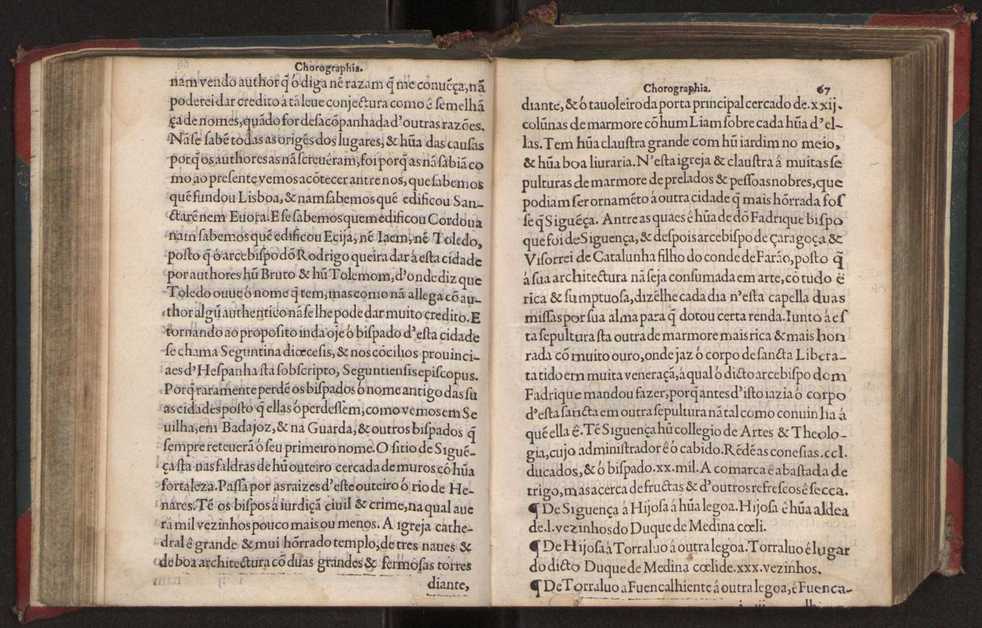 Chorographia.
nam vendo author q̃ ó diga nẽ razam q̃ me conuẽça, nã
poderei dar credito à tã leue conjectura como é semelhã
ça de nomes, quãdo for desacõpanhada d'outras razões.
Nã se sabẽ todas as origẽs dos lugares, & hũa das causas
porq̃ os authores as nã screuéram, foi porq̃ as nã sabiã co
mo ao presente vemos acõtecer antre nos, que sabemos
quẽ fundou Lisboa, & nam sabemos quẽ edificou San-
ctarẽ nem Euora. E se sabemos quem edificou Cordoua
nam sabemos quẽ edificou Ecija, nẽ Iaem, nẽ Toledo,
posto q̃ ó arcebispo dõ Rodrigo queira dar á esta cidade
por authores hũ Bruto & hũ Tolemom, d'onde diz que
Toledo ouue ó nome q̃ tem, mas como nã allega cõ au-
thor algũ authentico nã se lhe pode dar muito credito. E
tornando ao proposito inda oje ó bispado d'esta cidade
se chama Seguntina diœcesis, & nos cõcilios prouinci-
aes d'Hespanha sta sobscripto, Seguntiensis episcopus.
Porq̃ raramente perdẽ os bispados ó nome antigo das su
as cidades posto q̃ ellas ó perdessem, como vemos em Se
uilha, em Badajoz, & na Guarda, & outros bispados q̃
sempre reteuerã ó seu primeiro nome. O sitio de Siguẽ-
ça sta nas faldras de hũ outeiro cercada de muros cõ hũa
fortaleza. Passa por as raizes d'este outeiro ó rio de He-
nares. Tẽ os bispos á iurdiçã ciuil & crime, na qual aue
rá mil vezinhos pouco mais ou menos. A igreja cathe-
dral é grande & mui hõrrado templo, de tres naues &
de boa architectura cõ dũas grandes & fermosas torres
diante,
Chorographia. 67
diante, & ó tauoleiro da porta principal cercado de .xxij.
colũnas de marmore cõ hum Liam sobre cada hũa d'el-
las. Tem hũa claustra grande com hũ iardim no meio,
& hũa boa liuraria. N'esta igreja & claustra á muitas se
pulturas de marmore de prelados & pessoas nobres, que
podiam ser ornamẽto á outra cidade q̃ mais hõrrada fos
se q̃ Siguẽça. Antre as quaes é hũa de dõ Fadrique bispo
que foi de Siguença, & despois arcebispo de çaragoça &
Visorrei de Catalunha filho do conde de Farão, posto q̃
á sua architectura nã seja consumada em arte, cõ tudo é
rica & sumptuosa, dizẽ lhe cada dia n'esta capella duas
missas por sua alma para q̃ dotou certa renda. Iunto á es
ta sepultura sta outra de marmore mais rica & mais hon
rada cõ muito ouro, onde jaz ó corpo de sancta Libera-
ta tido em muita veneraçã, á qual ó dicto arcebispo dom
Fadrique mandou fazer, porq̃ antes d'isto iazia ó corpo
d'esta sancta em outra sepultura nã tal como conuinha á
quẽ ella é. Tẽ Siguença hũ collegio de Artes & Theolo-
gia, cujo administrador é ó cabido. Rẽdẽ as conesias .ccl.
ducados, & ó bispado .xx. mil. A comarca é abastada de
trigo, mas acerca de fructas & d'outros refrescos é secca.
¶ De Siguença á Hijosa á hũa legoa. Hijosa é hũa aldea
de .l. vezinhos do Duque de Medina cœli.
¶ De Hijosa à Torraluo á outra legoa. Torraluo é lugar
do dicto Duque de Medina cœli de .xxx. vezinhos.
¶ De Torraluo a Fuencalhiente á outra legoa, é Fuenca-